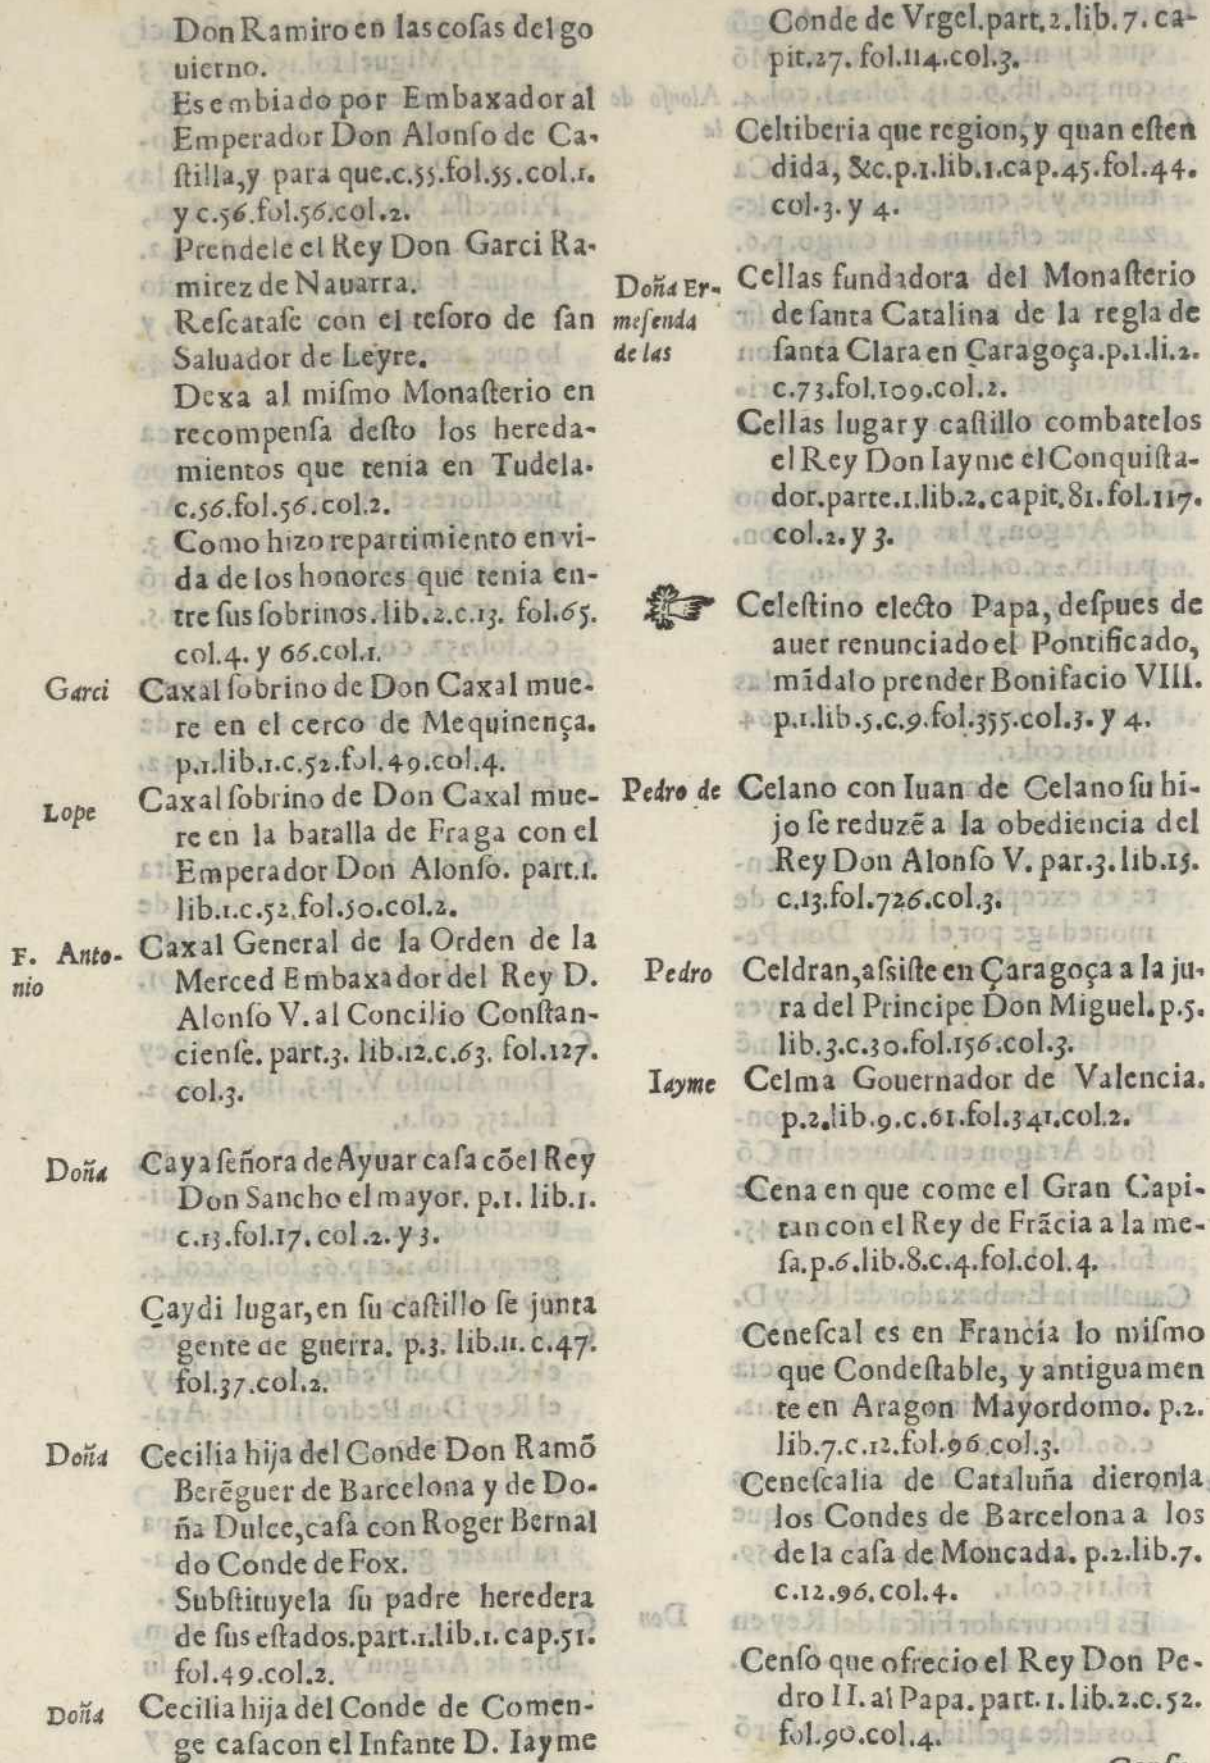 Don Ramiro en las cosas del go
uierno.
Es embiado por Embaxador al
Emperador Don Alonso de Ca-
stilla, y para que. c.55. fol.55. col.1.
y c.56. fol.56. col.2.
Prendele el Rey Don Garci Ra-
mirez de Nauarra.
Rescatase con el tesoro de san
Saluador de Leyre.
Dexa al mismo Monasterio en
recompensa desto los hereda-
mientos que tenia en Tudela.
c.56. fol.56. col.2.
Como hizo repartimiento en vi-
da de los honores que tenia en-
tre sus sobrinos. lib.2. c.13. fol.65.
col.4. y 66. col.1.
Garci Caxal sobrino de Don Caxal mue-
re en el cerco de Mequinença.
p.1. lib.1. c.52. fol.49. col.4.
Lope Caxal sobrino de Don Caxal mue-
re en la batalla de Fraga con el
Emperador Don Alonso. part.1.
lib.1. c.52. fol.50. col.2.
F. Anto- Caxal General de la Orden de la
nio Merced Embaxador del Rey D.
Alonso V. al Concilio Constan-
ciense. part.3. lib.12. c.63. fol.127.
col.3.
Doña Caya señora de Ayuar casa cõ el Rey
Don Sancho el mayor. p.1. lib.1.
c.13. fol.17. col.2. y 3.
Çaydi lugar, en su castillo se junta
gente de guerra. p.3. lib.11. c.47.
fol.37. col.2.
Doña Cecilia hija del Conde Don Ramõ
Berẽguer de Barcelona y de Do-
ña Dulce, casa con Roger Bernal
do Conde de Fox.
Substituyela su padre heredera
de sus estados. part.1. lib.1. cap.51.
fol.49. col.2.
Doña Cecilia hija del Conde de Comen-
ge casa con el Infante D. Iayme
Conde de Vrgel. part.2. lib.7. ca-
pit.27. fol.114. col.3.
Celtiberia que region, y quan esten
dida, &c. p.1. lib.1. cap.45. fol.44.
col.3. y 4.
Doña Er- Cellas fundadora del Monasterio
mesenda de santa Catalina de la regla de
de las santa Clara en Çaragoça. p.1. li.2.
c.73. fol.109. col.2.
Cellas lugar y castillo combatelos
el Rey Don Iayme el Conquista-
dor. parte.1. lib.2. capit.81. fol.117.
col.2. y 3.
☞ Celestino electo Papa, despues de
auer renunciado el Pontificado,
mãdalo prender Bonifacio VIII.
p.1. lib.5. c.9. fol.355. col.3. y 4.
Pedro de Celano con Iuan de Celano su hi-
jo se reduzẽ a la obediencia del
Rey Don Alonso V. par.3. lib.15.
c.13. fol.726. col.3.
Pedro Celdran, assiste en Çaragoça a la ju-
ra del Principe Don Miguel. p.5.
lib.3. c.30. fol.156. col.3.
Iayme Celma Gouernador de Valencia.
p.2. lib.9. c.61. fol.341. col.2.
Cena en que come el Gran Capi-
tan con el Rey de Frãcia a la me-
sa. p.6. lib.8. c.4. fol. col.4.
Cenescal es en Francia lo mismo
que Condestable, y antiguamen
te en Aragon Mayordomo. p.2.
lib.7. c.12. fol.96. col.3.
Cenescalia de Cataluña dieronla
los Condes de Barcelona a los
de la casa de Moncada. p.2. lib.7.
c.12. 96. col.4.
Censo que ofrecio el Rey Don Pe-
dro II. al Papa. part.1. lib.2. c.52.
fol.90. col.4.